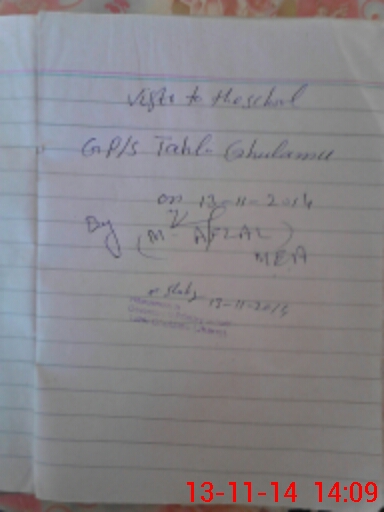 visite to the school
GP/S Tahl- Ghulamu
on 13-11-2014
By (M- AFZAL)
MEA
13-11-2014
13-11-14 14:09